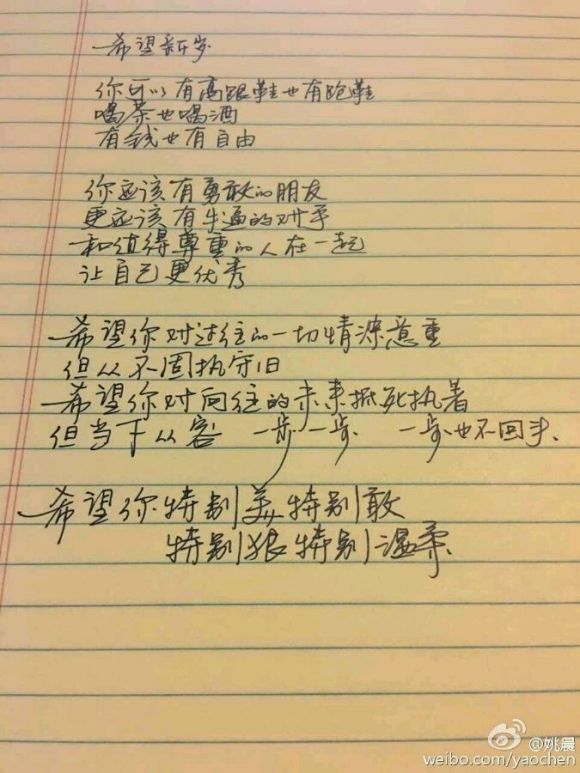 希望新年岁
你可以有高跟鞋也有跑鞋
喝茶也喝酒
有钱也有自由
你应该有勇敢的朋友
更应该有牛逼的对手
和值得尊重的人在一起
让自己更优秀
希望你对过往的一切情深意重
但从不固执守旧
希望你对向往的未来抵死执着
但当下从容 一步一步 一步也不回头、
希望你特别美特别敢
特别狠特别温柔
@姚晨
weibo.com/yaochen